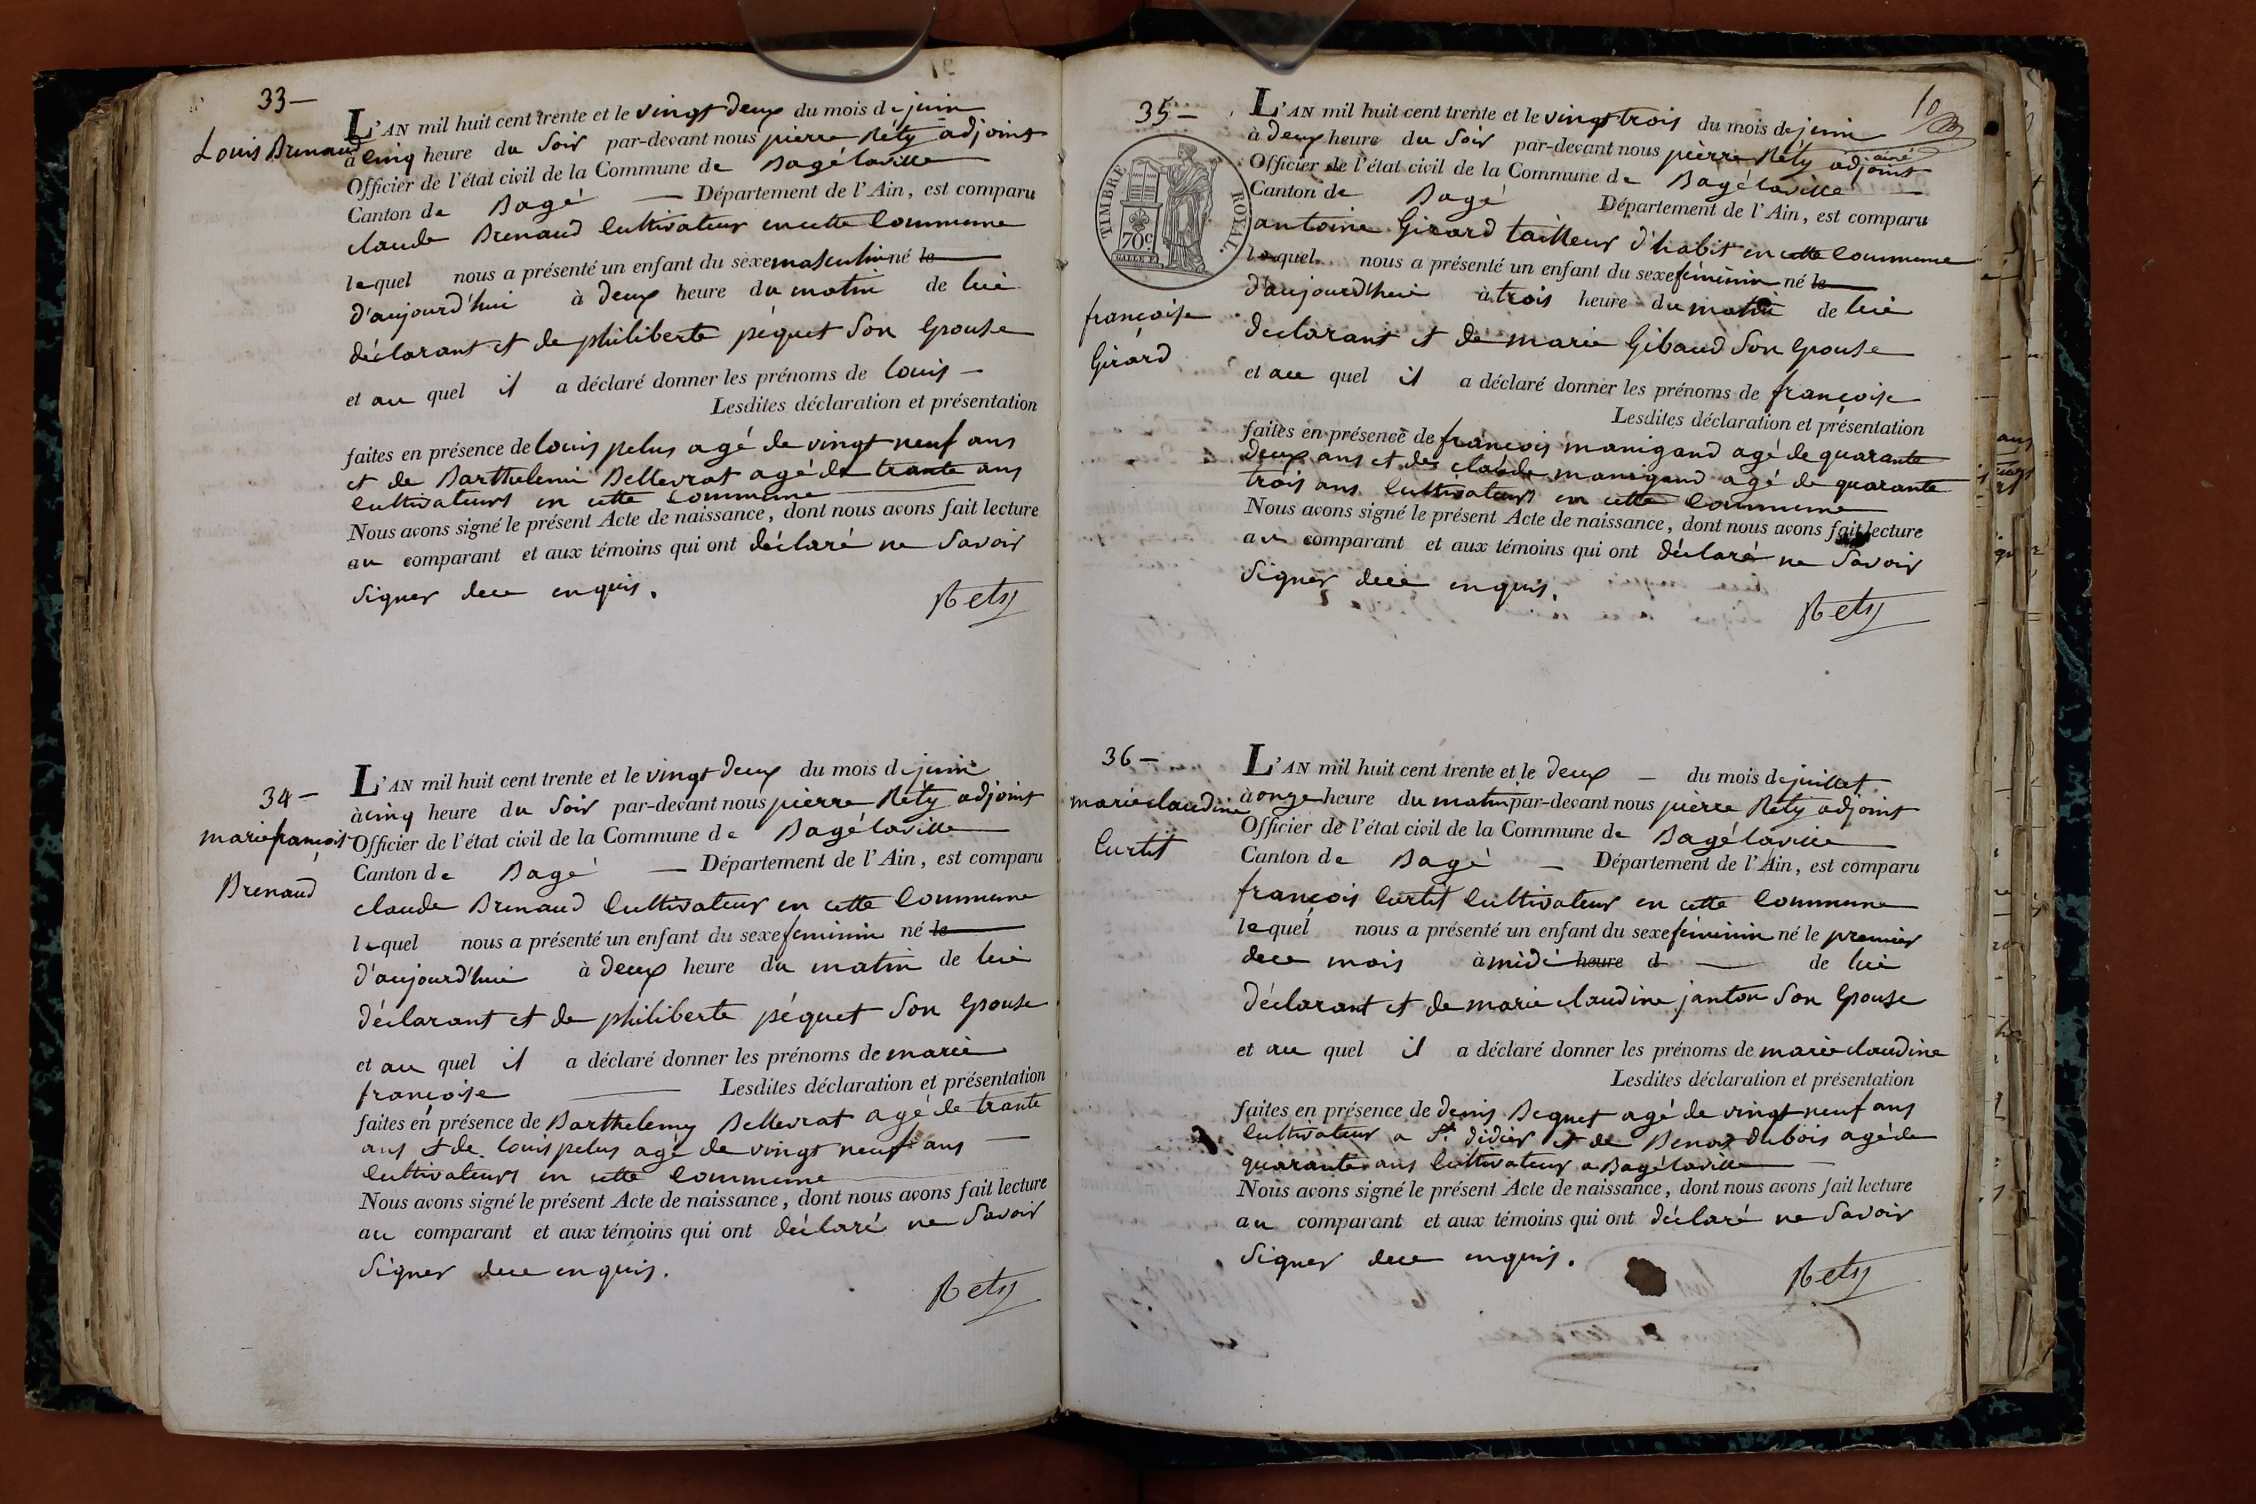 33 —
Louis Brenaud
L'AN mil huit cent trente et le vingt deux du mois de juin
à cinq heure du soir par-devant nous pierre Réty adjoint
Officier de l'état civil de la Commune de Bagélaville
Canton de Bagé — Département de l'Ain, est comparu
claude Brenaud cultivateur en cette commune
lequel nous a présenté un enfant du sexe masculin né le
d'aujourd'hui à deux heure du matin de lui
déclarant et de philiberte péquet son epouse
et au quel il a déclaré donner les prénoms de louis —
Lesdites déclaration et présentation
faites en présence de louis pelus agé de vingt neuf ans
et de Barthelemi Bellevrat agé de trante ans
cultivateurs en cette commune
Nous avons signé le présent Acte de naissance, dont nous avons fait lecture
au comparant et aux témoins qui ont déclaré ne savoir
signer dece enquis.
Réty
34 —
marie françoise
Brenaud
L'AN mil huit cent trente et le vingt deux du mois de juin
à cinq heure du soir par-devant nous pierre Réty adjoint
Officier de l'état civil de la Commune de Bagélaville
Canton de Bagé — Département de l'Ain, est comparu
claude Brenaud cultivateur en cette commune
lequel nous a présenté un enfant du sexe feminin né le
d'aujourd'hui à deux heure du matin de lui
déclarant et de philiberte péquet son epouse
et au quel il a déclaré donner les prénoms de marie
françoise — Lesdites déclaration et présentation
faites en présence de Barthelemy Bellevrat agé de trante
ans et de louis pelus agé de vingt neuf ans —
cultivateurs en cette commune
Nous avons signé le présent Acte de naissance, dont nous avons fait lecture
au comparant et aux témoins qui ont déclaré ne savoir
signer dece enquis.
Réty
10
35 —
TIMBRE ROYAL
70c
françoise
Girard
L'AN mil huit cent trente et le vingt trois du mois de juin
à deux heure du soir par-devant nous pierre Réty ainé adjoint
Officier de l'état civil de la Commune de Bagélaville
Canton de Bagé Département de l'Ain, est comparu
antoine Girard tailleur d'habit en cette commune
lequel nous a présenté un enfant du sexe féminin né le
d'aujourd'hui à trois heure du matin de lui
declarant et de marie Gibaud son epouse
et au quel il a déclaré donner les prénoms de françoise
Lesdites déclaration et présentation
faites en présence de françois manigand agé de quarante
deux ans et de claude manigand agé de quarante
trois ans cultivateurs en cette commune
Nous avons signé le présent Acte de naissance, dont nous avons fait lecture
au comparant et aux témoins qui ont déclaré ne savoir
signer dece enquis.
Réty
36 —
marie claudine
Curtit
L'AN mil huit cent trente et le deux — du mois de juillet
à onze heure du matin par-devant nous pierre Réty adjoint
Officier de l'état civil de la Commune de Bagélaville
Canton de Bagé — Département de l'Ain, est comparu
françois Curtit cultivateur en cette commune
lequel nous a présenté un enfant du sexe féminin né le premier
dece mois à midi heure d — de lui
déclarant et de marie claudine janton son epouse
et au quel il a déclaré donner les prénoms de marie claudine
Lesdites déclaration et présentation
faites en présence de denis Bequet agé de vingt neuf ans
cultivateur a St didier et de Benoit dubois agé de
quarante ans cultivateur a Bagélaville —
Nous avons signé le présent Acte de naissance, dont nous avons fait lecture
au comparant et aux témoins qui ont déclaré ne savoir
signer dece enquis.
Réty